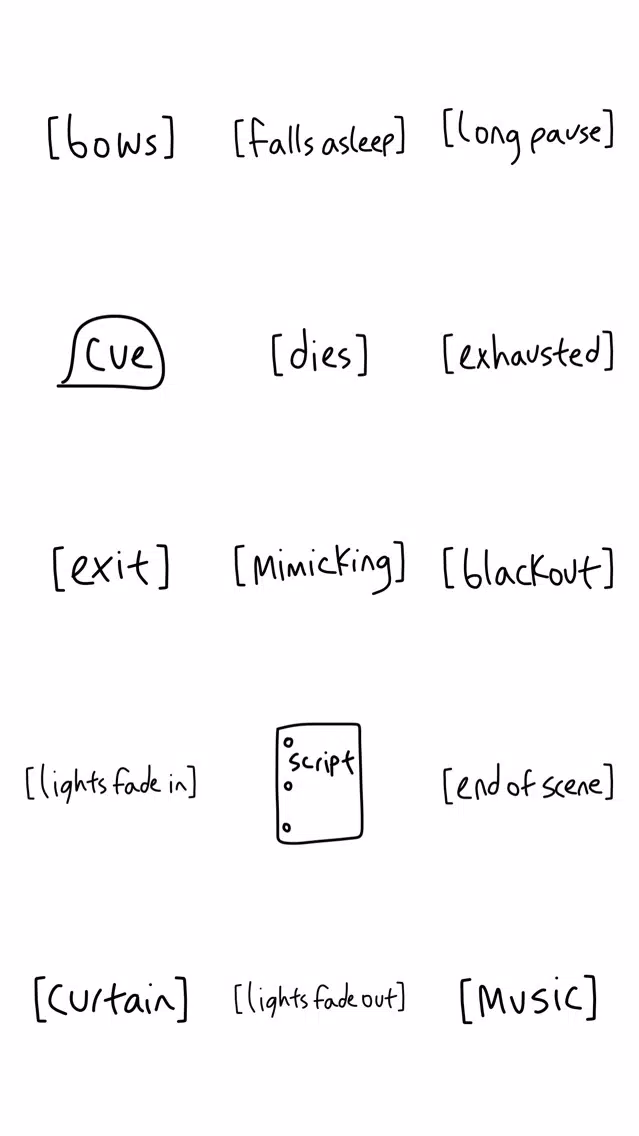 [bows] [falls asleep] [long pause]
cue [dies] [exhausted]
[exit] [mimicking] [blackout]
[lights fade in] script [end of scene]
[curtain] [lights fade out] [music]